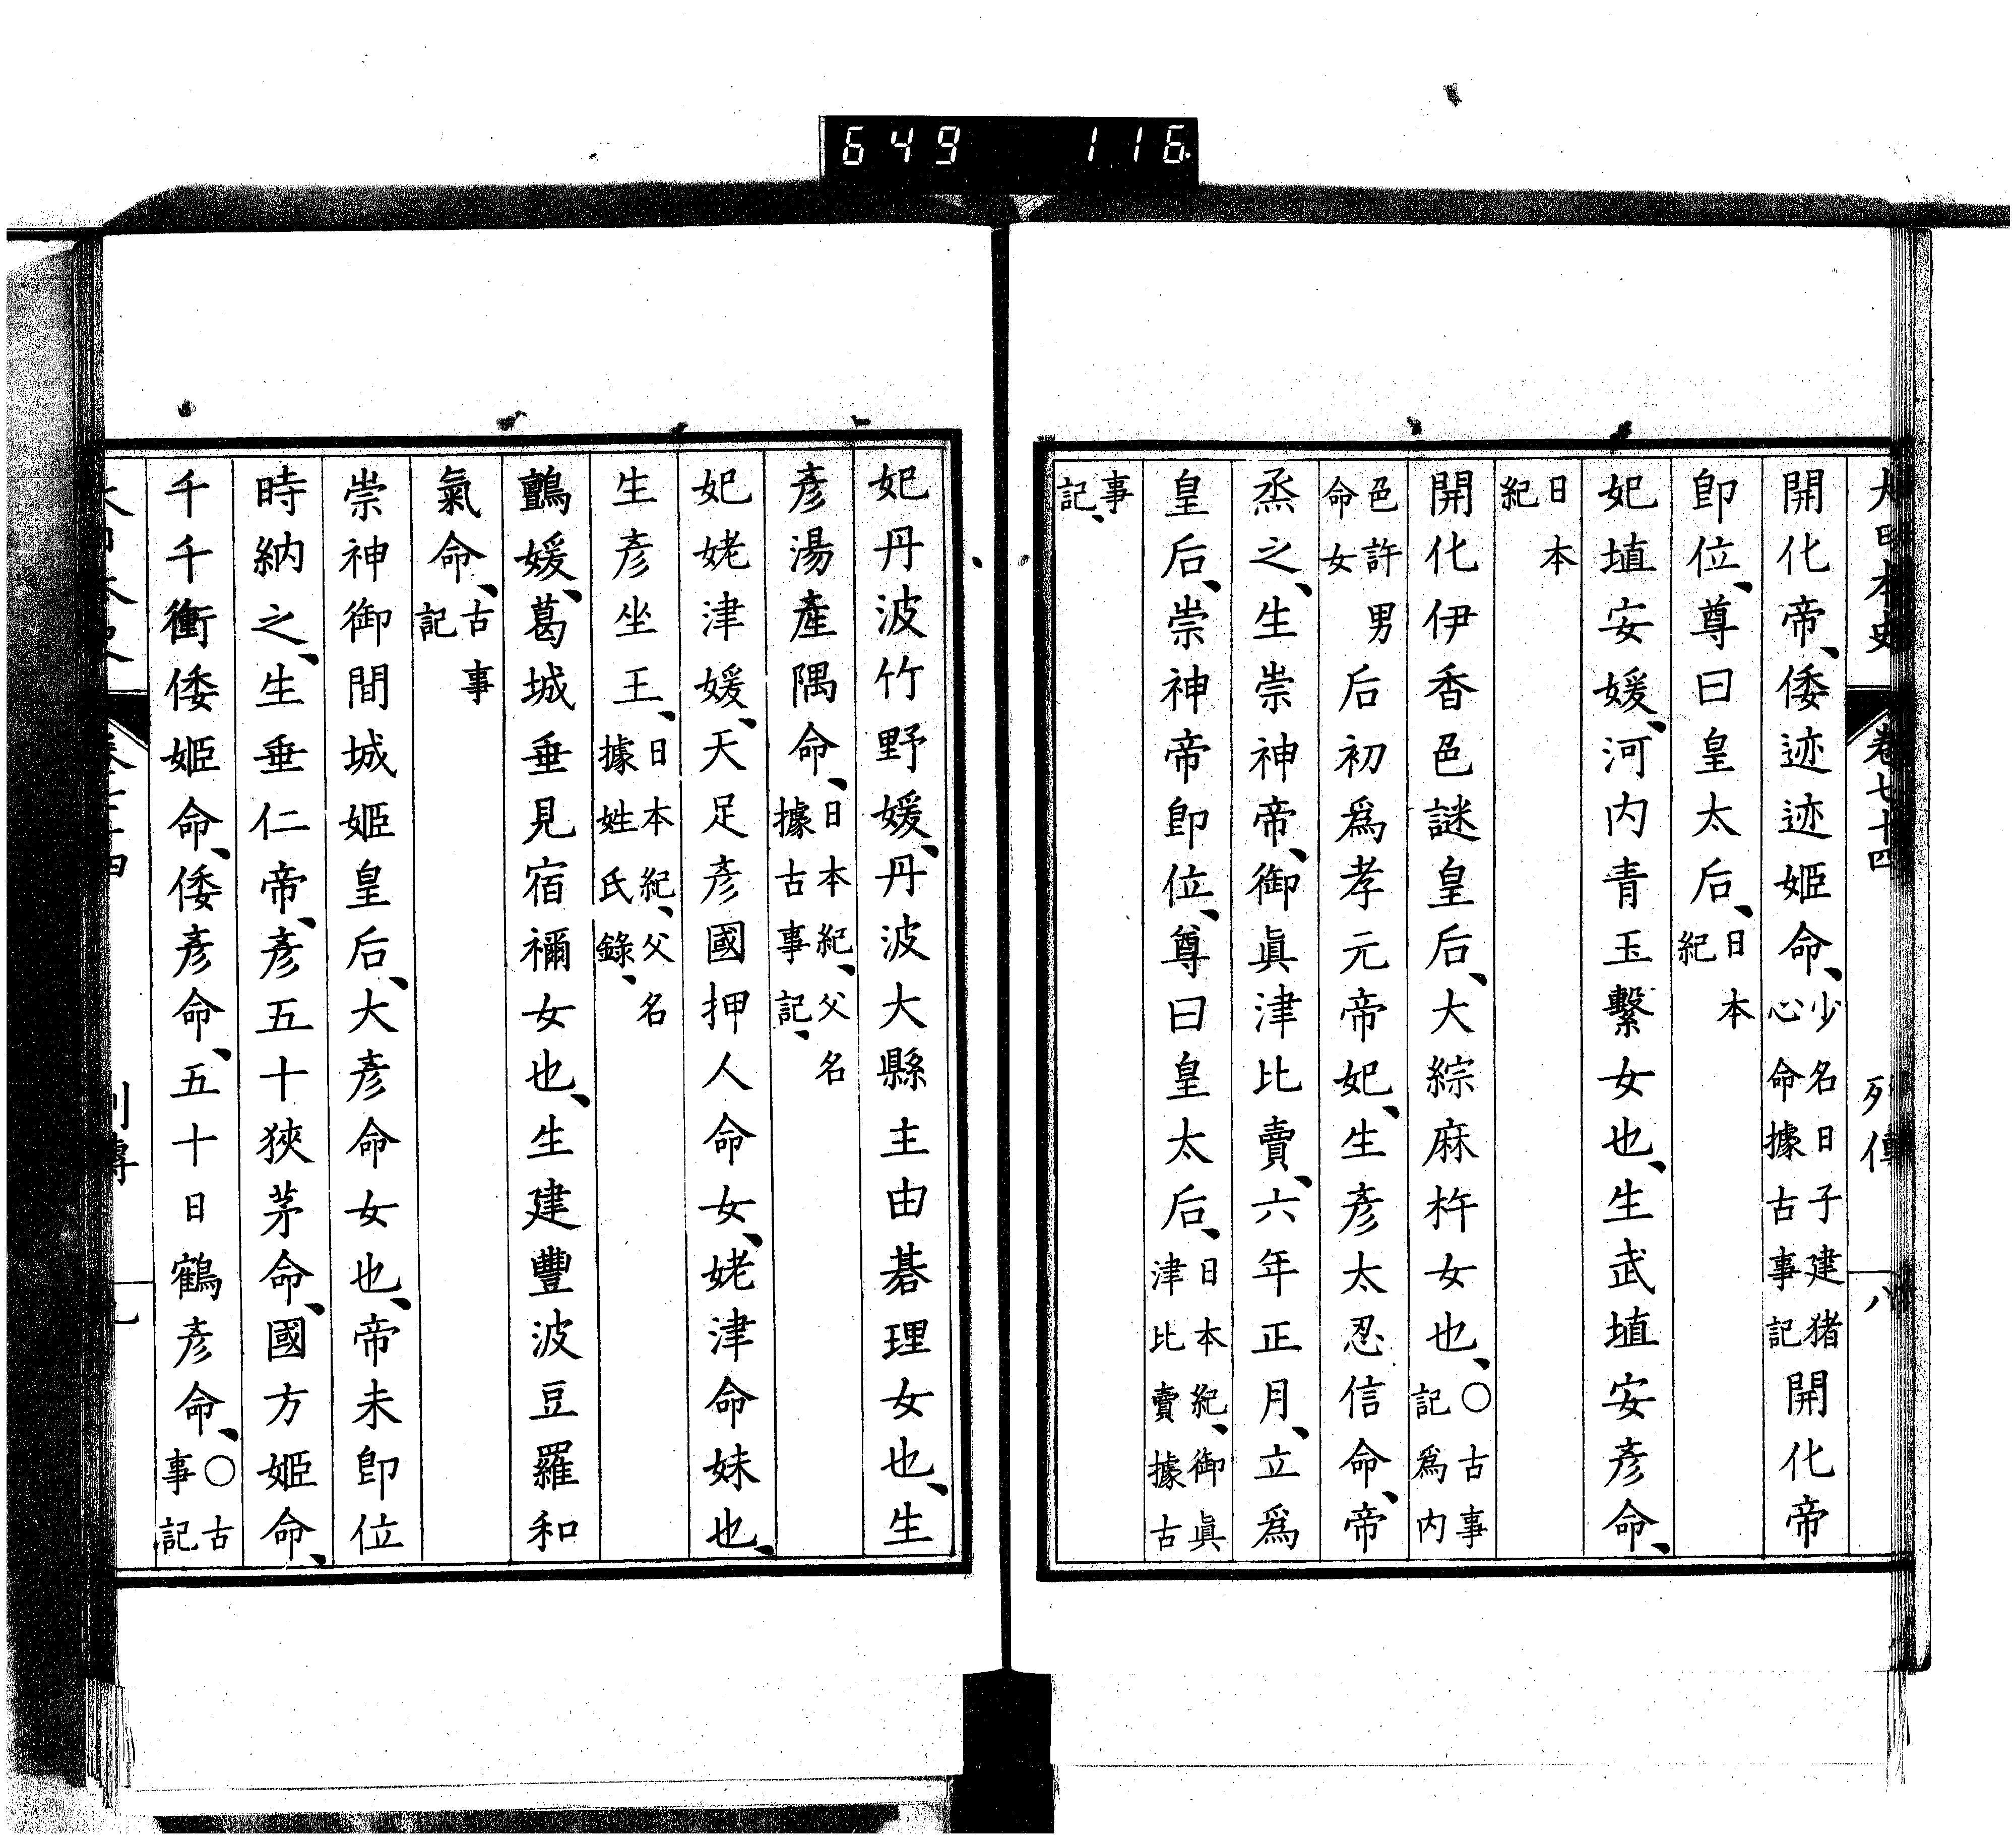 649 116
大日本史 卷七十四 列傳 八
開化帝、倭迹迹姬命、少名日子建猪心命據古事記開化帝
卽位、尊曰皇太后、日本紀
妃埴安媛、河內青玉繫女也、生武埴安彥命、
日本紀
開化伊香色謎皇后、大綜麻杵女也、○古事記爲內
色許男命女后初爲孝元帝妃、生彥太忍信命、帝
烝之、生崇神帝、御眞津比賣、六年正月、立爲
皇后、崇神帝卽位、尊曰皇太后、日本紀、御眞津比賣據古
事記、
妃丹波竹野媛、丹波大縣主由碁理女也、生
彥湯產隅命、日本紀、父名據古事記、
妃姥津媛、天足彥國押人命女、姥津命妹也、
生彥坐王、日本紀、父名據姓氏錄、
鸇媛、葛城垂見宿禰女也、生建豐波豆羅和
氣命、古事記
崇神御間城姬皇后、大彥命女也、帝未卽位
時納之、生垂仁帝、彥五十狹茅命、國方姬命、
千千衝倭姬命、倭彥命、五十日鶴彥命、○古事記